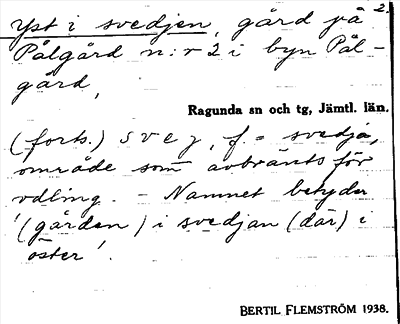 2.
Yst i svedjen, gård på
Pålgård n:r 2 i byn Pål-
gård,
Ragunda sn och tg, Jämtl. län.
(forts.) svej, f. = svedja,
område som avbränts för
odling. - Namnet betyder
'(gården) i svedjan (där) i
öster'.
BERTIL FLEMSTRÖM 1938.